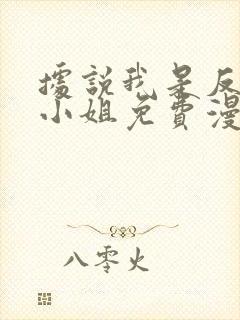 據說我是反
小姐免費漫
八零火